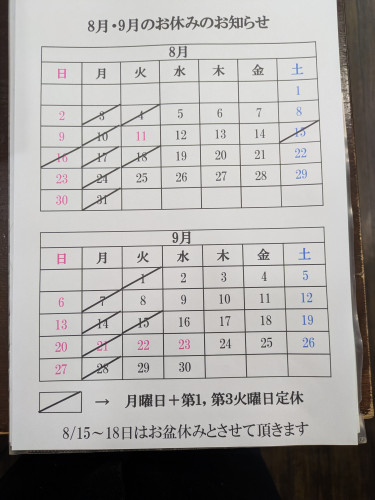 8月・9月のお休みのお知らせ
8月
日 月 火 水 木 金 土
1
2 3 4 5 6 7 8
9 10 11 12 13 14 15
16 17 18 19 20 21 22
23 24 25 26 27 28 29
30 31
9月
日 月 火 水 木 金 土
1 2 3 4 5
6 7 8 9 10 11 12
13 14 15 16 17 18 19
20 21 22 23 24 25 26
27 28 29 30
→ 月曜日+第1, 第3火曜日定休
8/15~18日はお盆休みとさせて頂きます